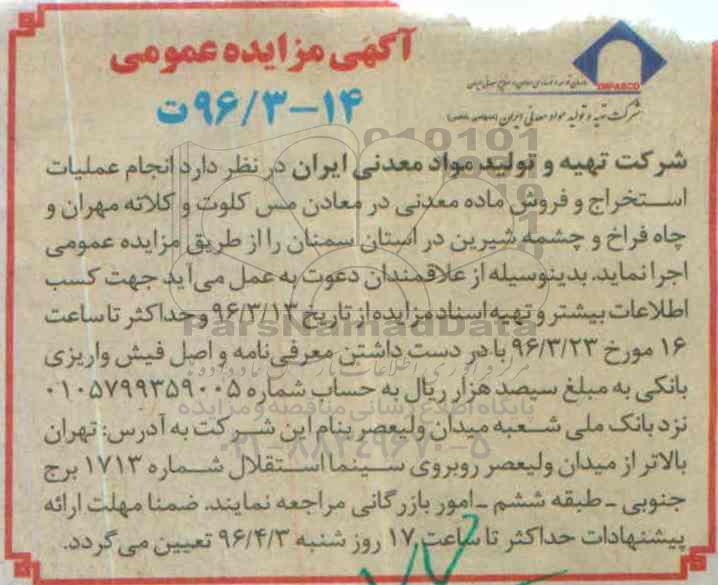 آگهی مزایده عمومی
۹۶/۳-۱۴ت
IMPASCO
شرکت تهیه و تولید مواد معدنی ایران
شرکت تهیه و تولید مواد معدنی ایران در نظر دارد انجام عملیات
استخراج و فروش ماده معدنی در معادن مس کلوت و کلاته مهران و
چاه فراخ و چشمه شیرین در استان سمنان را از طریق مزایده عمومی
اجرا نماید. بدینوسیله از علاقمندان دعوت به عمل می‌آید جهت کسب
اطلاعات بیشتر و تهیه اسناد مزایده از تاریخ ۹۶/۳/۱۳ و حداکثر تا ساعت
ParsNamadData
۱۶ مورخ ۹۶/۳/۲۳ با در دست داشتن معرفی‌نامه و اصل فیش واریزی
بانکی به مبلغ سیصد هزار ریال به حساب شماره ۰۱۰۵۷۹۹۳۵۹۰۰۵
پایگاه اطلاع رسانی مناقصه و مزایده
نزد بانک ملی شعبه میدان ولیعصر بنام این شرکت به آدرس: تهران
۰۲۱-۸۸۳۴۹۶۷۰-۵
بالاتر از میدان ولیعصر روبروی سینما استقلال شماره ۱۷۱۳ برج
جنوبی - طبقه ششم - امور بازرگانی مراجعه نمایند. ضمنا مهلت ارائه
پیشنهادات حداکثر تا ساعت ۱۷ روز شنبه ۹۶/۴/۳ تعیین می‌گردد.